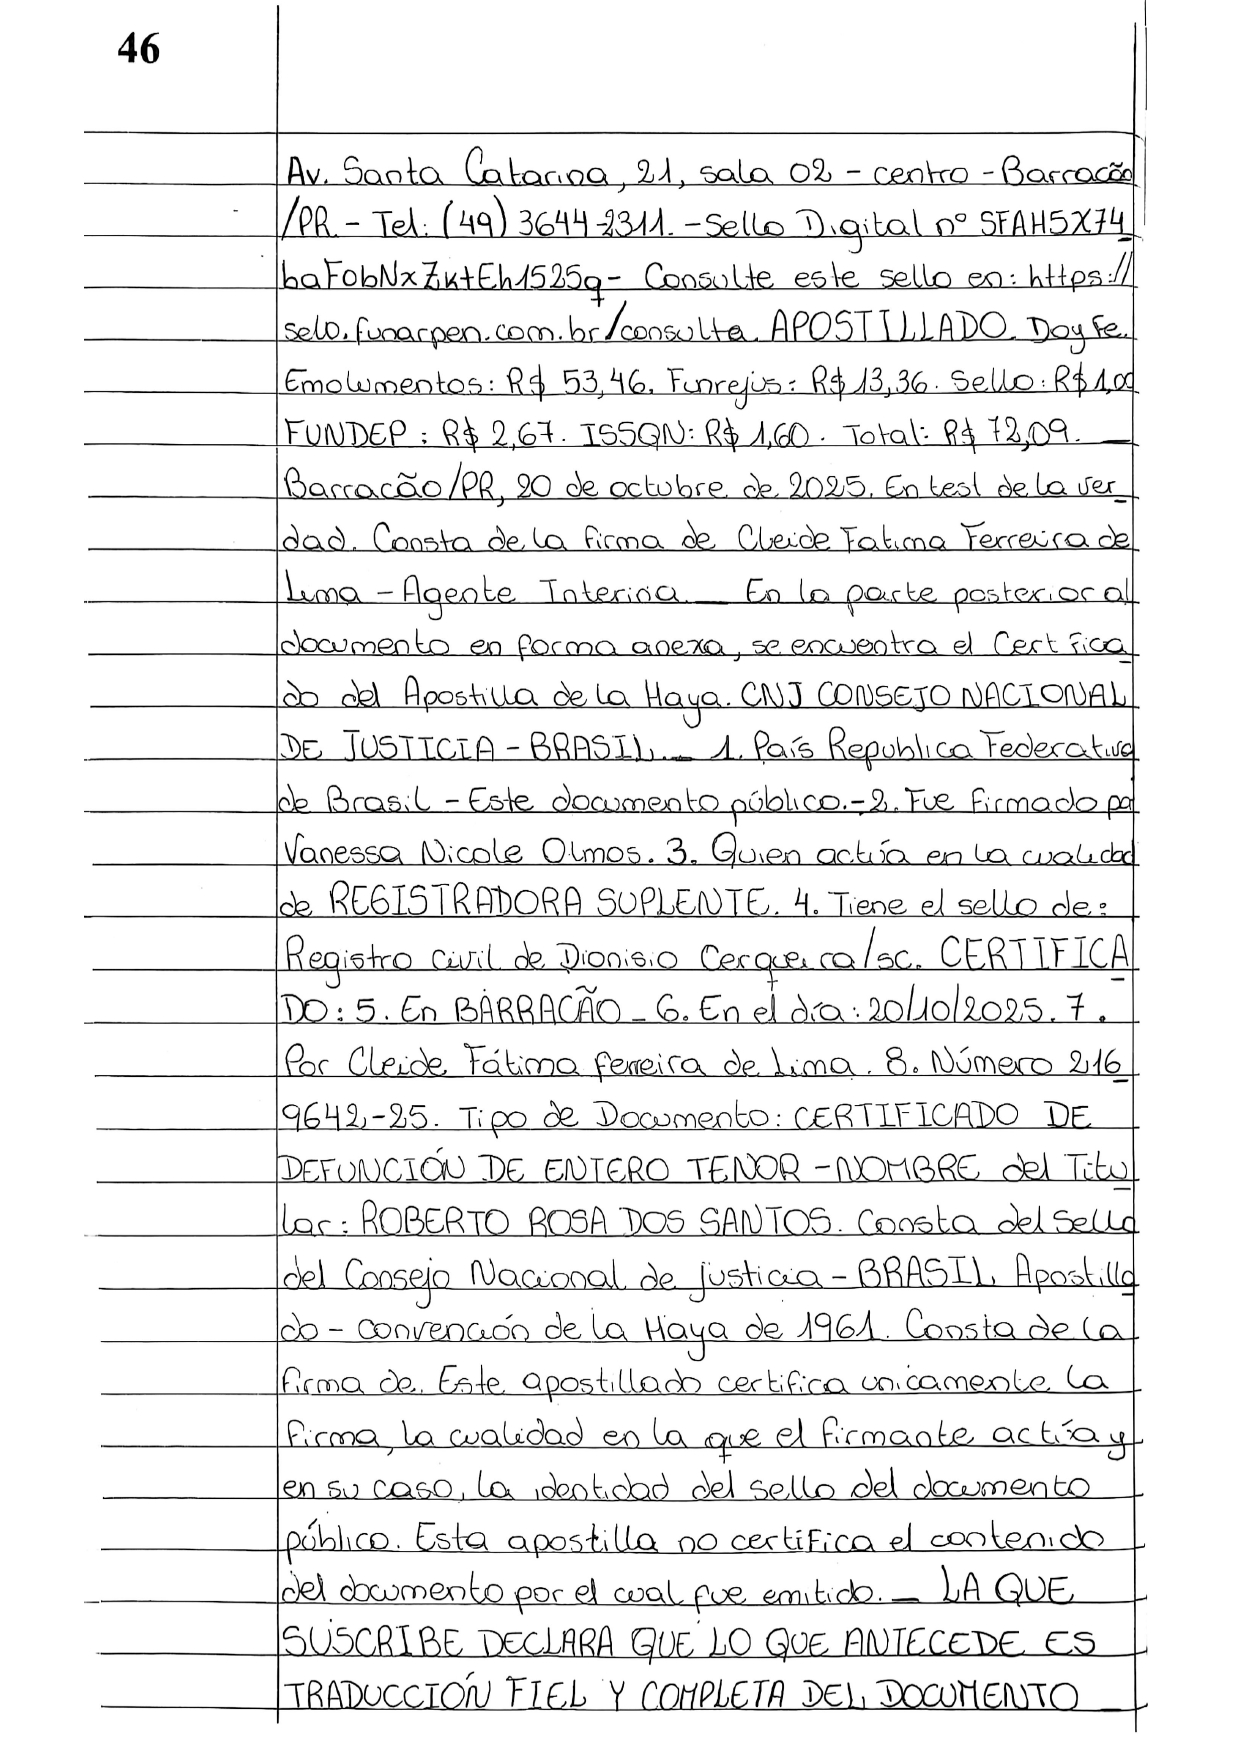 46
Av. Santa Catarina, 21, sala 02 - centro - Barracão
/PR - Tel: (49) 3644-2311. - Sello Digital nº SFAH5X74
baFobNxZktEh1525q - Consulte este sello en: https://
selo.funarpen.com.br/consulta. APOSTILLADO. Doy Fe.
Emolumentos: R$ 53,46. Funrejus: R$ 13,36. Sello: R$ 1,00
FUNDEP: R$ 2,67. ISSQN: R$ 1,60. Total: R$ 72,09. —
Barracão/PR, 20 de octubre de 2025. En test de la ver
dad. Consta de la firma de Cleide Fatima Ferreira de
Lima - Agente Interina. — En la parte posterior al
documento en forma anexa, se encuentra el Certifica
do del Apostilla de la Haya. CNJ CONSEJO NACIONAL
DE JUSTICIA - BRASIL. — 1. País Republica Federativa
de Brasil - Este documento público. - 2. Fue firmado por
Vanessa Nicole Olmos. 3. Quien actúa en la cualidad
de REGISTRADORA SUPLENTE. 4. Tiene el sello de:
Registro Civil de Dionisio Cerqueira/sc. CERTIFICA
DO: 5. En BARRACÃO - 6. En el día: 20/10/2025. 7.
Por Cleide Fátima ferreira de Lima. 8. Número 216
9642-25. Tipo de Documento: CERTIFICADO DE
DEFUNCIÓN DE ENTERO TENOR - NOMBRE del Titu
lar: ROBERTO ROSA DOS SANTOS. Consta del Sello
del Consejo Nacional de justicia - BRASIL. Apostilla
do - convención de la Haya de 1961. Consta de la
firma de. Este apostillado certifica unicamente la
firma, la cualidad en la que el firmante actúa y
en su caso, la identidad del sello del documento
público. Esta apostilla no certifica el contenido
del documento por el cual fue emitido. — LA QUE
SUSCRIBE DECLARA QUE LO QUE ANTECEDE ES
TRADUCCIÓN FIEL Y COMPLETA DEL DOCUMENTO